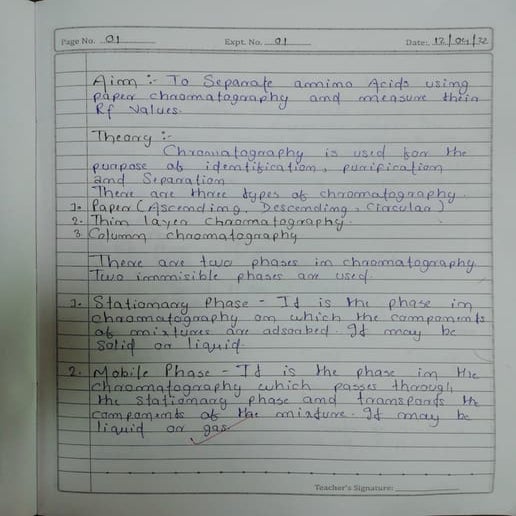 Page No. 01 Expt. No. 01 Date: 12/04/22
Aim :- To Separate ammino Acids using
paper chromatography and measure their
Rf values.
Theory :-
Chromatography is used for the
purpose of identification, purification
and Separation
There are three types of chromatography.
1. Paper (Ascending, Descending, Circular)
2. Thin layer chromatography.
3. Column chromatography
There are two phases in chromatography
Two immisible phases are used.
1. Stationary Phase - It is the phase in
chromatography on which the components
of mixtures are adsorbed. It may be
Solid or liquid.
2. Mobile Phase - It is the phase in the
chromatography which passes through
the stationary phase and transports the
components of the mixture. It may be
liquid or gas.
Teacher's Signature: